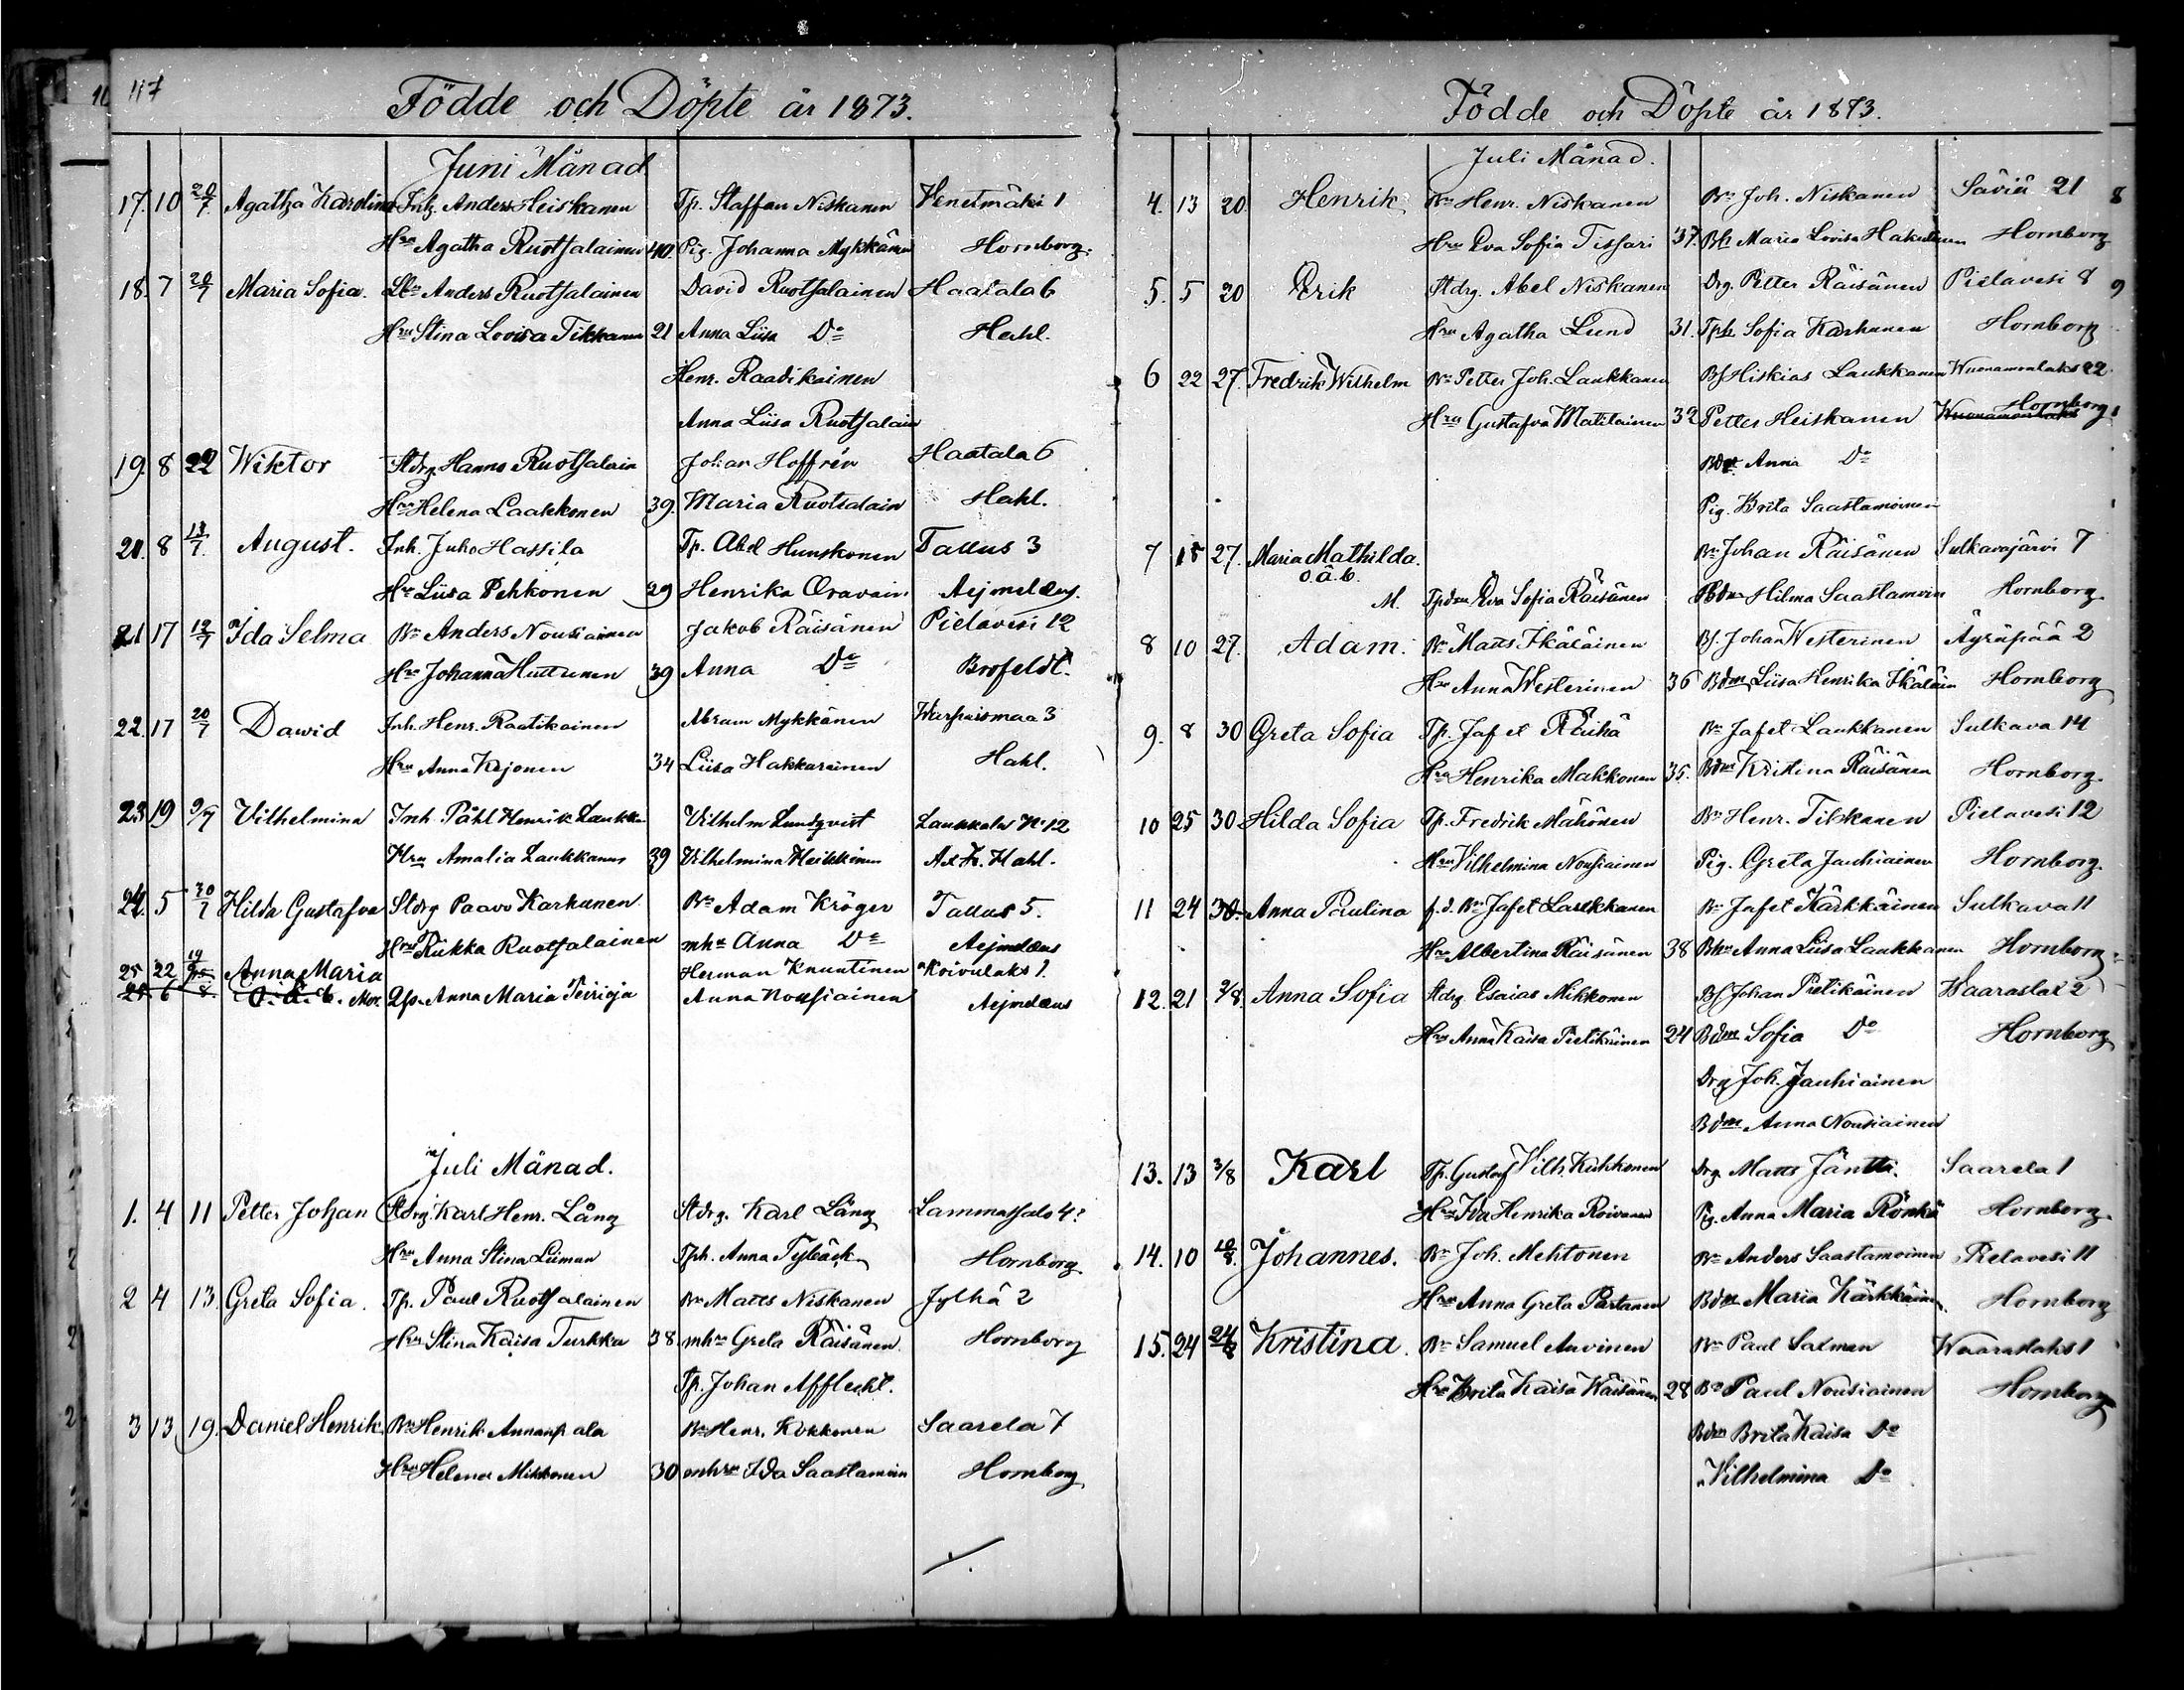 117
Födde och Döpte år 1873.
Juni Månad
17. 10 20/7 Agatha Karolina Inh. Anders Heiskanen Tp. Staffan Niskanen Venetmäki 1
Hru Agatha Ruotsalainen 40. Pig. Johanna Mykkänen Hornborg.
18. 7 20/7 Maria Sofia. Anders Ruotsalainen David Ruotsalainen Haatala 6
Hru Stina Lovisa Tikkanen 21 Anna Liisa Do Hahl.
Henr. Raadikainen
Anna Liisa Ruotsalain
19. 8 22 Wiktor Stdrg Hanns Ruotsalain Johan Hoffrén Haatala 6
Hru Helena Laakkonen 39. Maria Ruotsalain Hahl.
20. 8 13/7. August. Inh. Juho Hassila Tp. Abel Hunskonen Tallus 3
Hru Liisa Pehkonen 29 Henrika Oravain Aejmelæus.
21 17 12/7 Ida Selma Bn Anders Nousiainen Jakob Räisänen Pielavesi 12
Hru Johanna Huttunen 39 Anna Do Brofeldt.
22. 17 20/7 Dawid Inh. Henr. Raatikainen Abram Mykkänen Warpaismaa 3
Hru Anna Kejonen 34 Liisa Hakkarainen Hahl.
23 19 9/7 Vilhelmina Inh. Påhl Henrik Laukka Vilhelm Lundqvist Laukkala No 12
Hru Amalia Laukkanen 39 Vilhelmina Heikkinen Ax. Hahl.
24. 5 30/7 Hilda Gustafva Stdrg Paavo Karhunen Bn Adam Kröger Tallus 5.
Hru Riikka Ruotsalainen mhu Anna Do Aejmelæus
25 22 19 Anna Maria Herman Knuutinen Koivulaks 1.
25 6 8. O. ä. b. Mor. Anna Maria Teirioja Anna Nousiainen Aejmelæus
Juli Månad.
1. 4 11 Petter Johan Stdrg. Karl Henr. Lång Stdrg. Karl Lång Lammassalo 4?
Hru Anna Stina Liiman Tph. Anna Tybäck Hornborg
2 4 13 Greta Sofia. Tp. Paul Ruotsalainen Bn Matts Niskanen Jylhä 2
Hru Stina Kaisa Turkka 38 mhu Greta Räisänen. Hornborg
Tp. Johan Afflecht.
3 13 19. Daniel Henrik. Bn Henrik Annanpala Bn Henr. Kokkonen Saarela 7
Hru Helena Mikkonen 30 mhu Ida Saastamoin Hornborg
Födde och Döpte år 1873.
Juli Månad.
4. 13 20. Henrik Bn Henr. Niskanen Bn Joh. Niskanen Säviä 21 8
Hru Eva Sofia Tissari 37. Maria Lovisa Hornborg
5. 5 20 Erik Stdrg. Abel Niskanen Drg. Petter Räisänen Pielavesi 8 9
Hru Agatha Lund 31. Tph Sofia Karhunen Hornborg
6 22 27. Fredrik Wilhelm Bn Petter Joh. Laukkanen Bs Hiskias Laukkanen Wuonamonlaks 22
Hru Gustafva Matilainen 32 Petter Heiskanen Wuonamonlaks Hornborg
Bdr Anna Do
Pig. Brita Saastamoinen
7 15 27. Maria Mathilda. Bn Johan Räisänen Sulkavajärvi 7
o. ä. b.
M. Tpdtr Eva Sofia Räisänen Hilma Saastamoin Hornborg.
8 10 27. Adam. Bn Matts Ikäläinen Bs. Johan Westerinen Äyräpää 2
Hru Anna Westerinen 36 Bdm Liisa Henrika Ikäläin Hornborg
9. 8 30 Greta Sofia Tp. Jafet Räihä Bn Jafet Laukkanen Sulkava 14
Hru Henrika Makkonen 35. Bdm Kristina Räisänen Hornborg.
10 25 30 Hilda Sofia Tp. Fredrik Mähönen Bn Henr. Tikkanen Pielavesi 12
Hru Vilhelmina Nousiainen Pig. Greta Jauhiainen Hornborg.
11 24 30. Anna Paulina f. d. Bn Jafet Laukkanen Bn Jafet Kärkkäinen Sulkava 11
Hru Albertina Räisänen 38 Bhu Anna Liisa Laukkanen Hornborg
12. 21 2/8. Anna Sofia Stdrg. Esaias Mikkonen Bs Johan Pietikäinen Waaraslax 2
Hru Anna Kaisa Pietikäinen 24 Bdm Sofia Do Hornborg
Drg Joh. Jauhiainen
Bdm Anna Nousiainen
13. 13 3/8 Karl Tp. Gustaf Vilh. Kuhkonen Drg. Matts Jäntti. Saarela 1
Hru Eva Henrika Roivanen Pig. Anna Maria Rönkä Hornborg.
14. 10 10/8. Johannes. Bn Joh. Mehtonen Bn Anders Saastamoinen Pielavesi 11
Hru Anna Greta Partanen Bdm Maria Kärkkäinen. Hornborg
15. 24 24/8 Kristina. Bn Samuel Auvinen Bn Paul Saxman Waaraslaks 1
Hru Brita Kaisa Räisänen 28 Bn Paul Nousiainen Hornborg
Bdm Brita Kaisa Do
" Vilhelmina Do